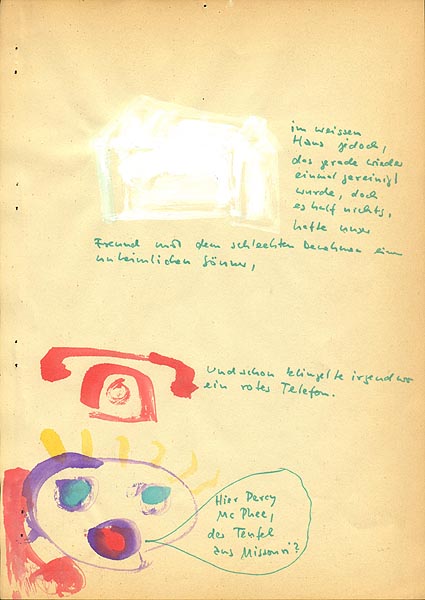 im weissen
Haus jedoch,
das gerade wieder
einmal gereinigt
wurde, doch
es half nichts,
hatte unser
Freund mit dem schlechten Benehmen einen
unheimlichen Gönner,
Und schon klingelte irgendwo
ein rotes Telefon.
Hier Percy
Mc Phee,
des Teufel
aus Missouri?